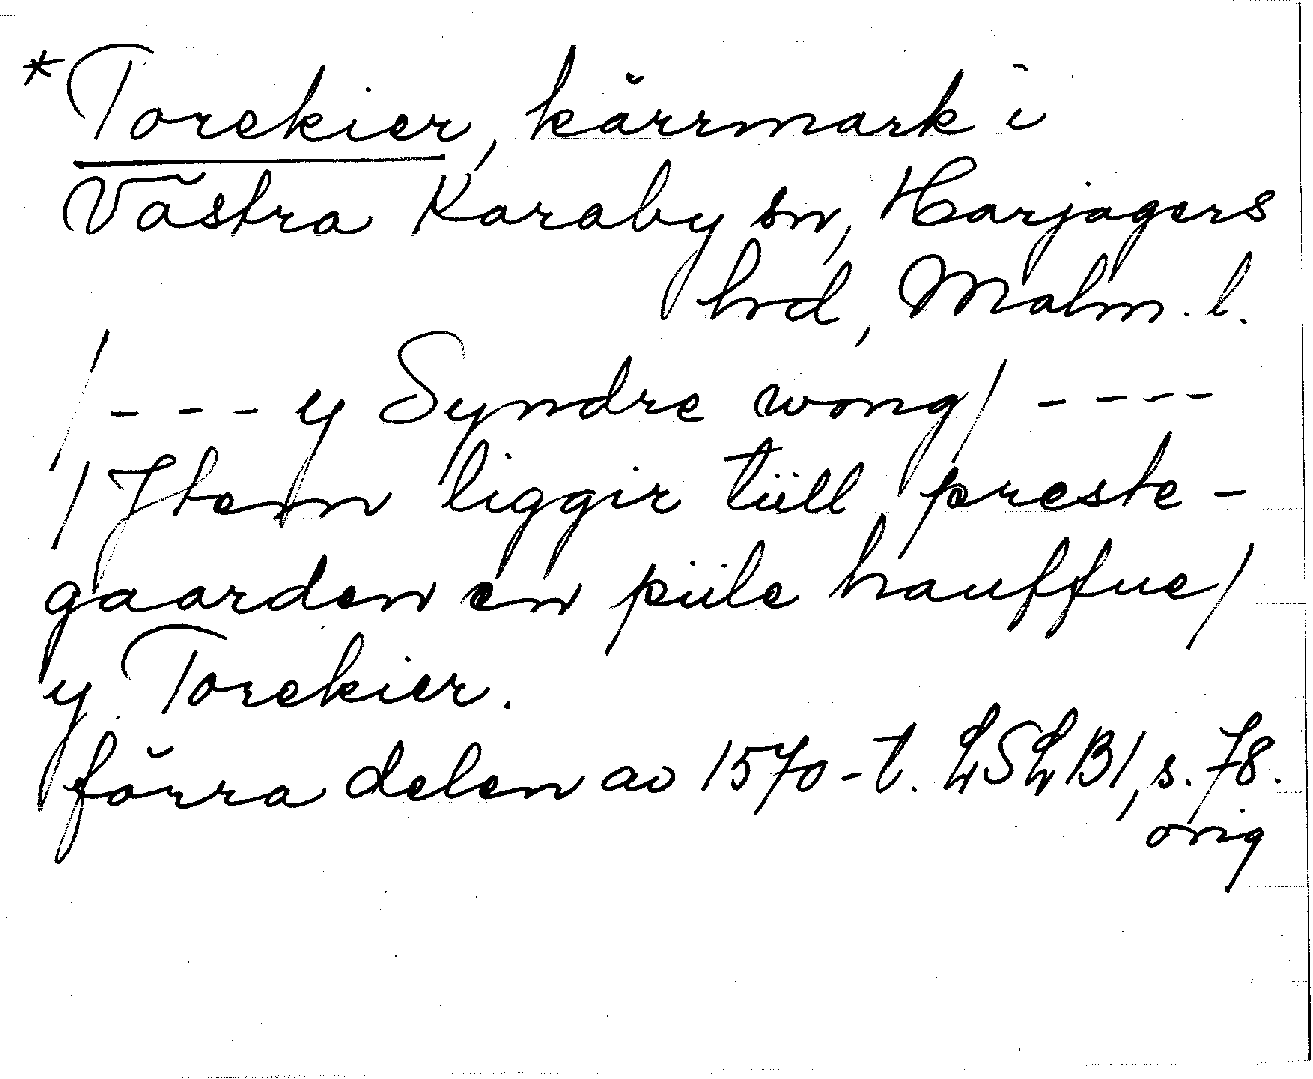 *Torekier, kärrmark i
Västra Karaby sn, Harjagers
hrd, Malm. l.
/ - - - y Syndre wong/ - - - -
/ Jtem liggir tiill preste-
gaarden en piile hauffue/
y Torekier.
förra delen av 1570-t. LSLB1, s. 78.
orig